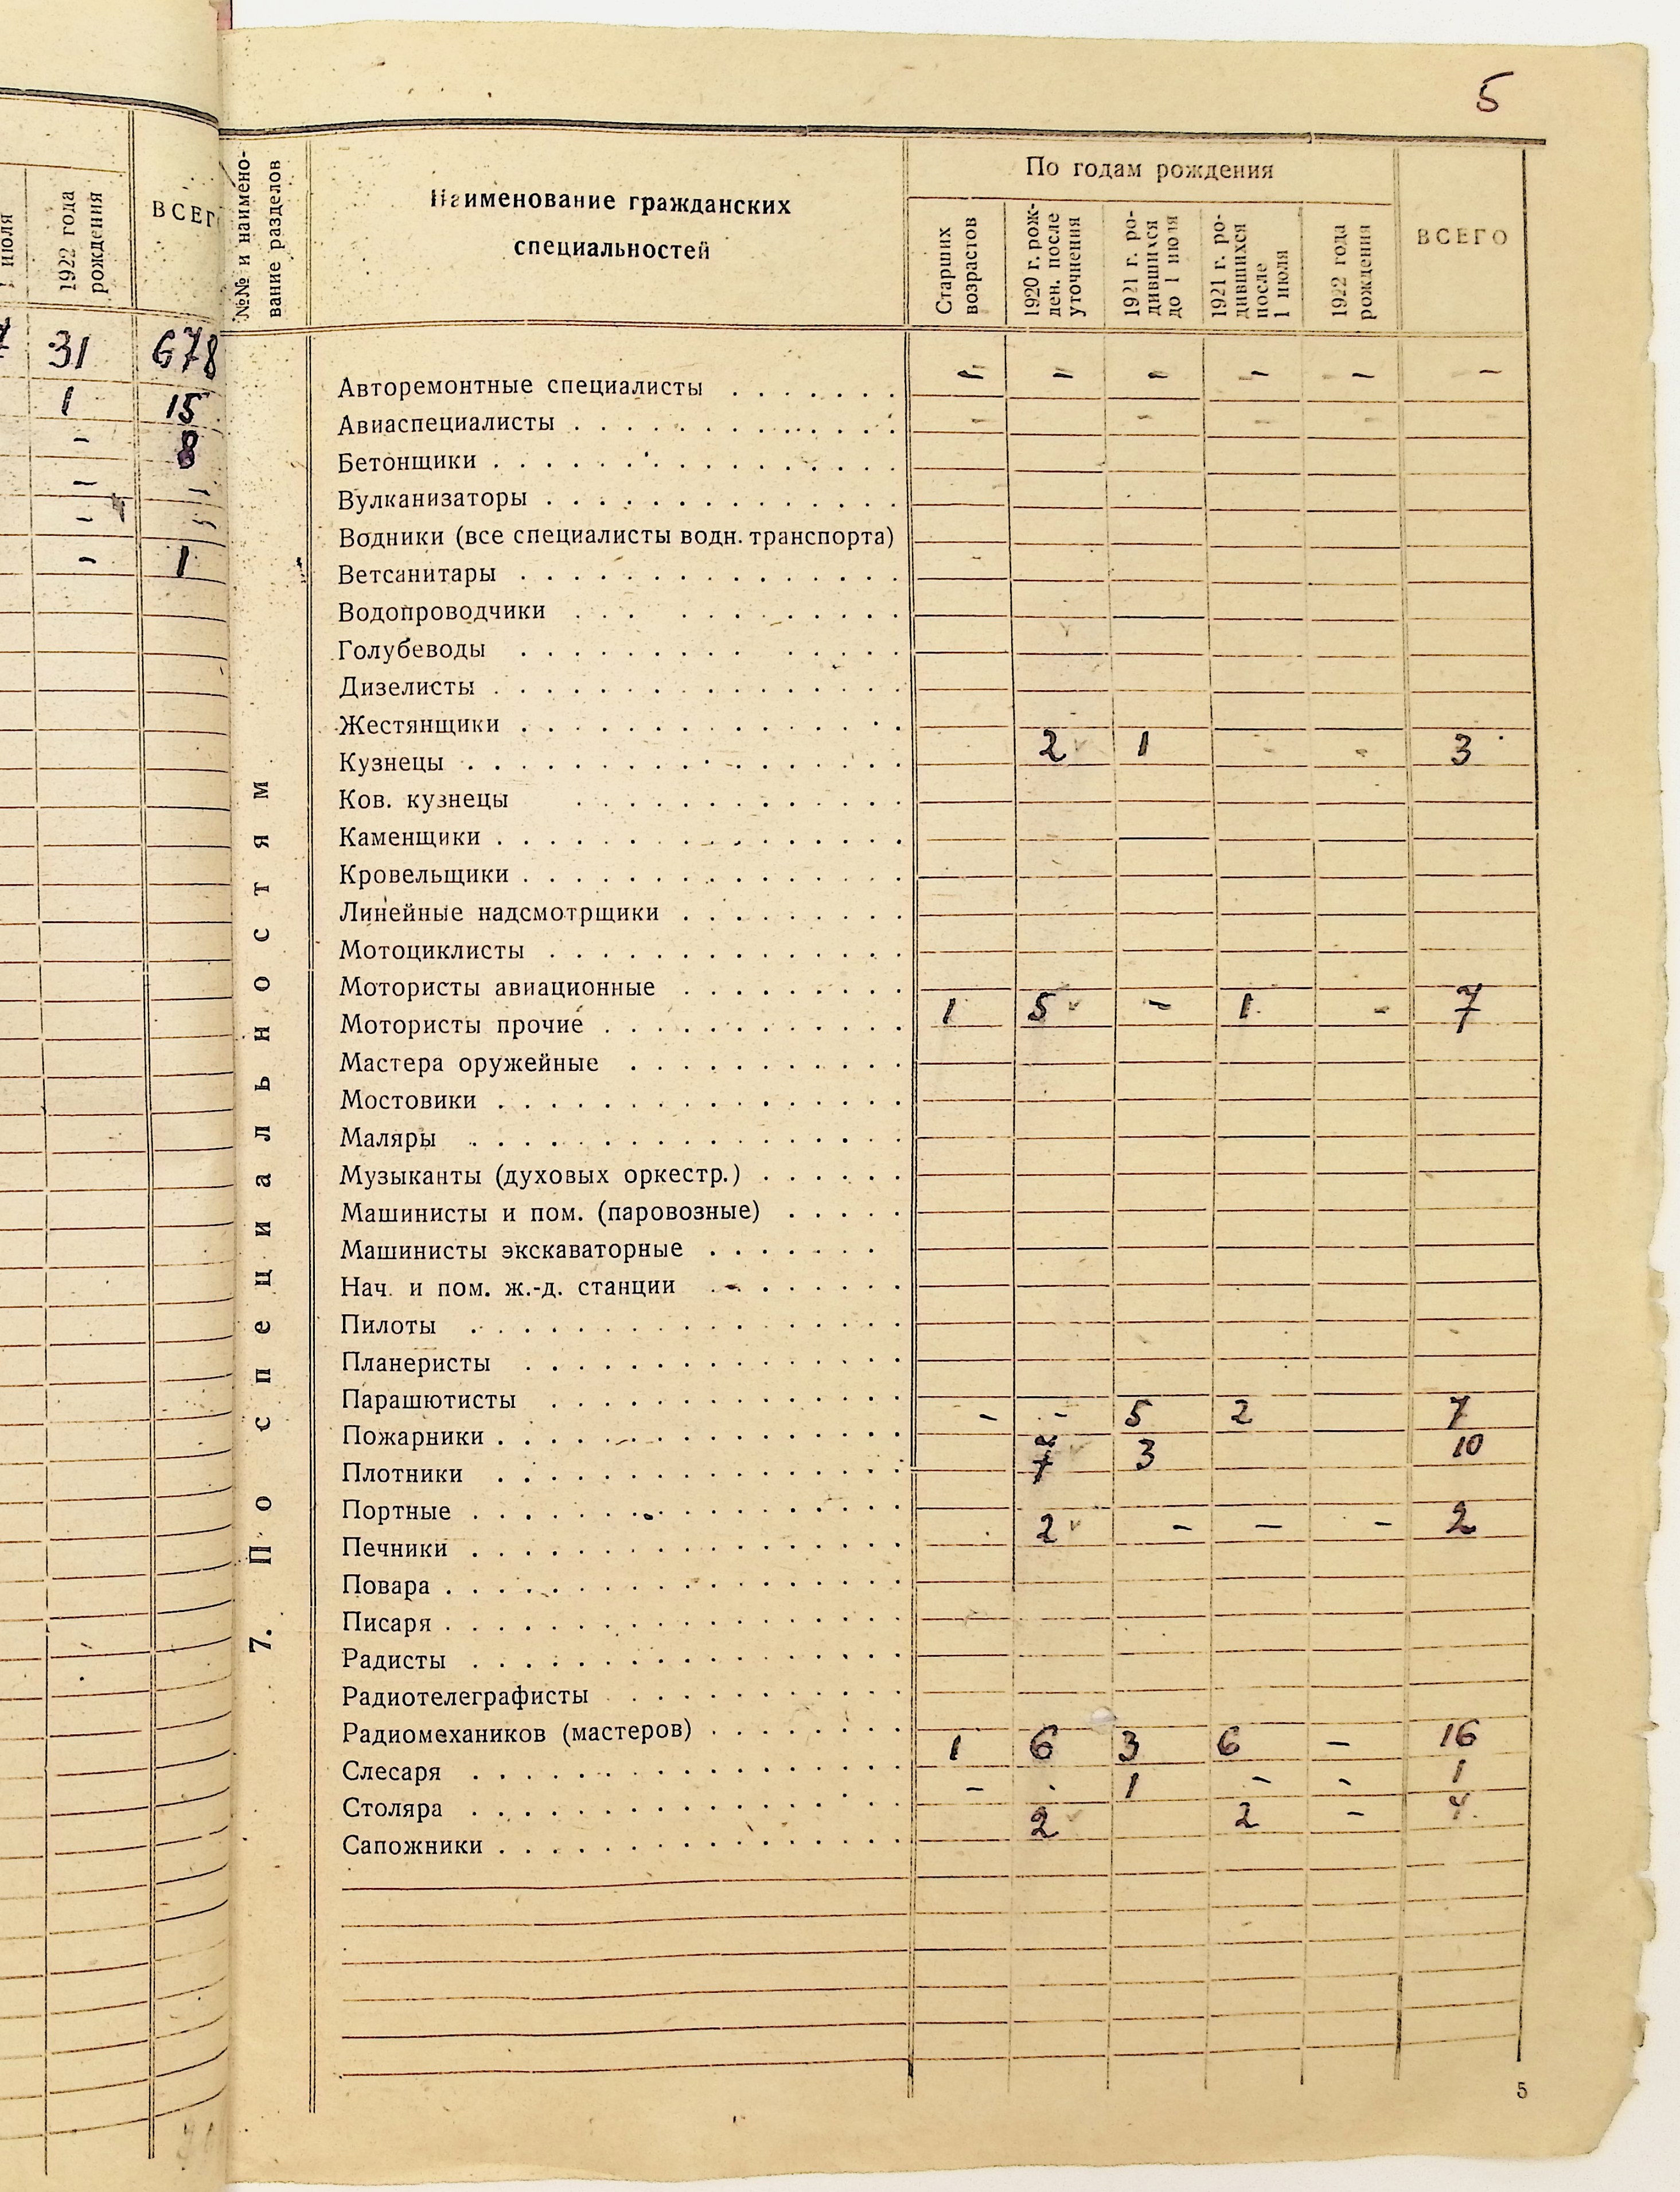 5
июля
1922 года рождения
ВСЕГ
31 678
1 15
- 8
- -
-
- 1
№№ и наимено-
вание разделов
Наименование гражданских
специальностей
По годам рождения
Старших
возрастов
1920 г. рож-
ден. после
уточнения
1921 г. ро-
дившихся
до 1 июля
1921 г. ро-
дившихся
после
1 июля
1922 года
рождения
ВСЕГО
7. По специальностям
Авторемонтные специалисты - - - - - -
Авиаспециалисты - - - -
Бетонщики
Вулканизаторы
Водники (все специалисты водн. транспорта)
Ветсанитары
Водопроводчики
Голубеводы
Дизелисты
Жестянщики
Кузнецы 2 1 - - 3
Ков. кузнецы
Каменщики
Кровельщики
Линейные надсмотрщики
Мотоциклисты
Мотористы авиационные
Мотористы прочие 1 5 - 1 - 7
Мастера оружейные
Мостовики
Маляры
Музыканты (духовых оркестр.)
Машинисты и пом. (паровозные)
Машинисты экскаваторные
Нач. и пом. ж.-д. станции
Пилоты
Планеристы
Парашютисты
Пожарники - - 5 2 7
Плотники 7 3 10
Портные
Печники 2 - - - 2
Повара
Писаря
Радисты
Радиотелеграфисты
Радиомехаников (мастеров)
Слесаря 1 6 3 6 - 16
Столяра - - 1 - - 1
Сапожники 2 2 - 4
5